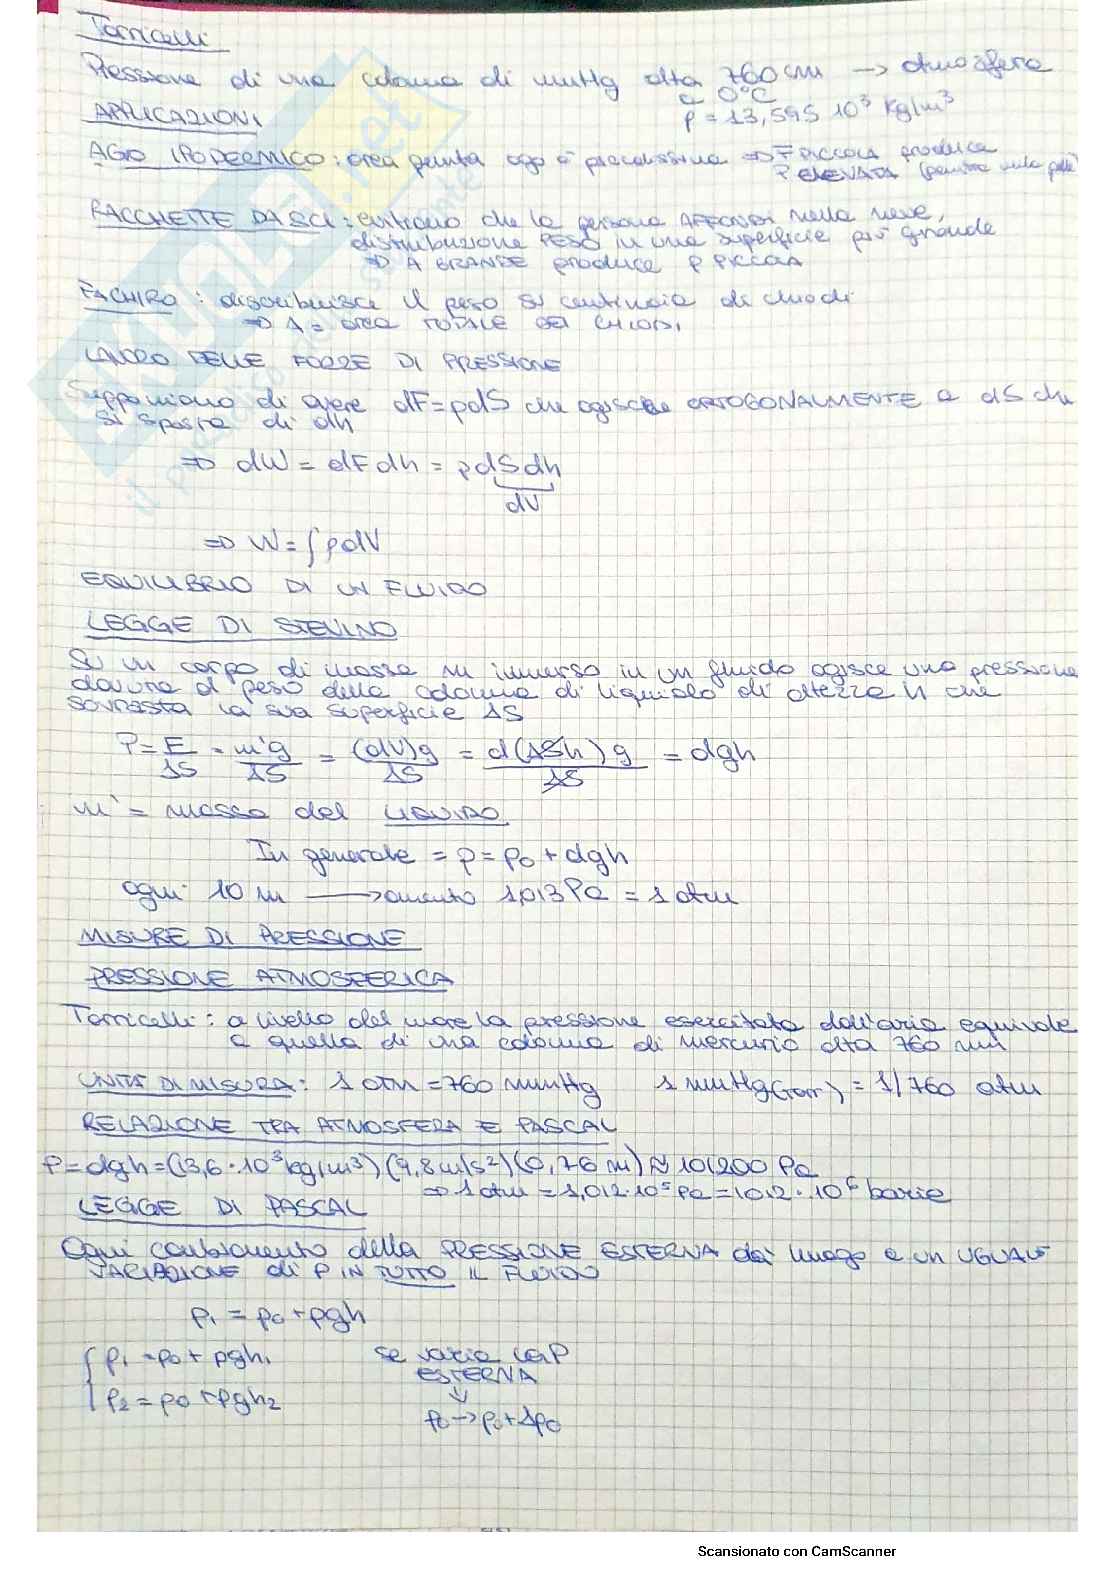 Torricelli
Pressione di una colonna di mmHg alta 760 cm → atmosfera
a 0°C
ρ = 13,595 10³ Kg/m³
APPLICAZIONI
AGO IPODERMICO: area punta ago è piccolissima ⇒ F PICCOLA produce
P ELEVATA (penetra nella pelle)
RACCHETTE DA SCI: evitano che la persona AFFONDI nella neve,
distribuzione PESO in una superficie più grande
⇒ A GRANDE produce P PICCOLA
FACHIRO: distribuisce il peso su centinaia di chiodi
⇒ A = area TOTALE DEI CHIODI
LAVORO DELLE FORZE DI PRESSIONE
Supponiamo di avere dF=pdS che agisce ORTOGONALMENTE a dS che
si sposta di dh
⇒ dW = dFdh = pdSdh
dV
⇒ W = ∫pdV
EQUILIBRIO DI UN FLUIDO
LEGGE DI STEVINO
Su un corpo di massa m immerso in un fluido agisce una pressione
dovuta al peso della colonna di liquido di altezza h che
sovrasta la sua superficie ΔS
P = F/ΔS = m'g/ΔS = (dV)g/ΔS = d(ΔSh)g/ΔS = dgh
m' = massa del LIQUIDO
In generale = p = p₀ + dgh
ogni 10 m → aumento 1,013 Pa = 1 atm
MISURE DI PRESSIONE
PRESSIONE ATMOSFERICA
Torricelli: a livello del mare la pressione esercitata dall'aria equivale
a quella di una colonna di mercurio alta 760 mm
UNITÀ DI MISURA: 1 atm = 760 mmHg 1 mmHg (Torr) = 1/760 atm
RELAZIONE TRA ATMOSFERA E PASCAL
P = dgh = (13,6 · 10³ kg/m³)(9,8 m/s²)(0,76 m) ≈ 101200 Pa
⇒ 1 atm = 1,012 · 10⁵ Pa = 1012 · 10⁶ barie
LEGGE DI PASCAL
Ogni cambiamento della PRESSIONE ESTERNA dà luogo a un UGUALE
VARIAZIONE di P IN TUTTO IL FLUIDO
p₁ = p₀ + ρgh
{ p₁ = p₀ + ρgh₁
p₂ = p₀ + ρgh₂
se varia la P
ESTERNA
⇓
p₀ → p₀ + Δp₀
Scansionato con CamScanner